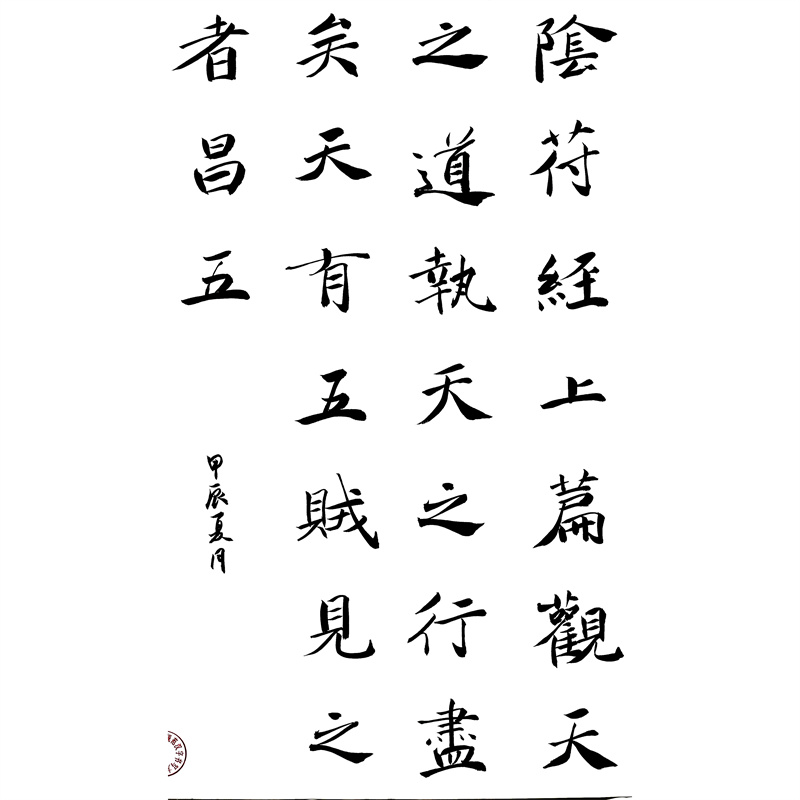 陰苻經上篇觀天
之道執天之行盡
矣天有五賊見之
者昌五
甲辰夏月